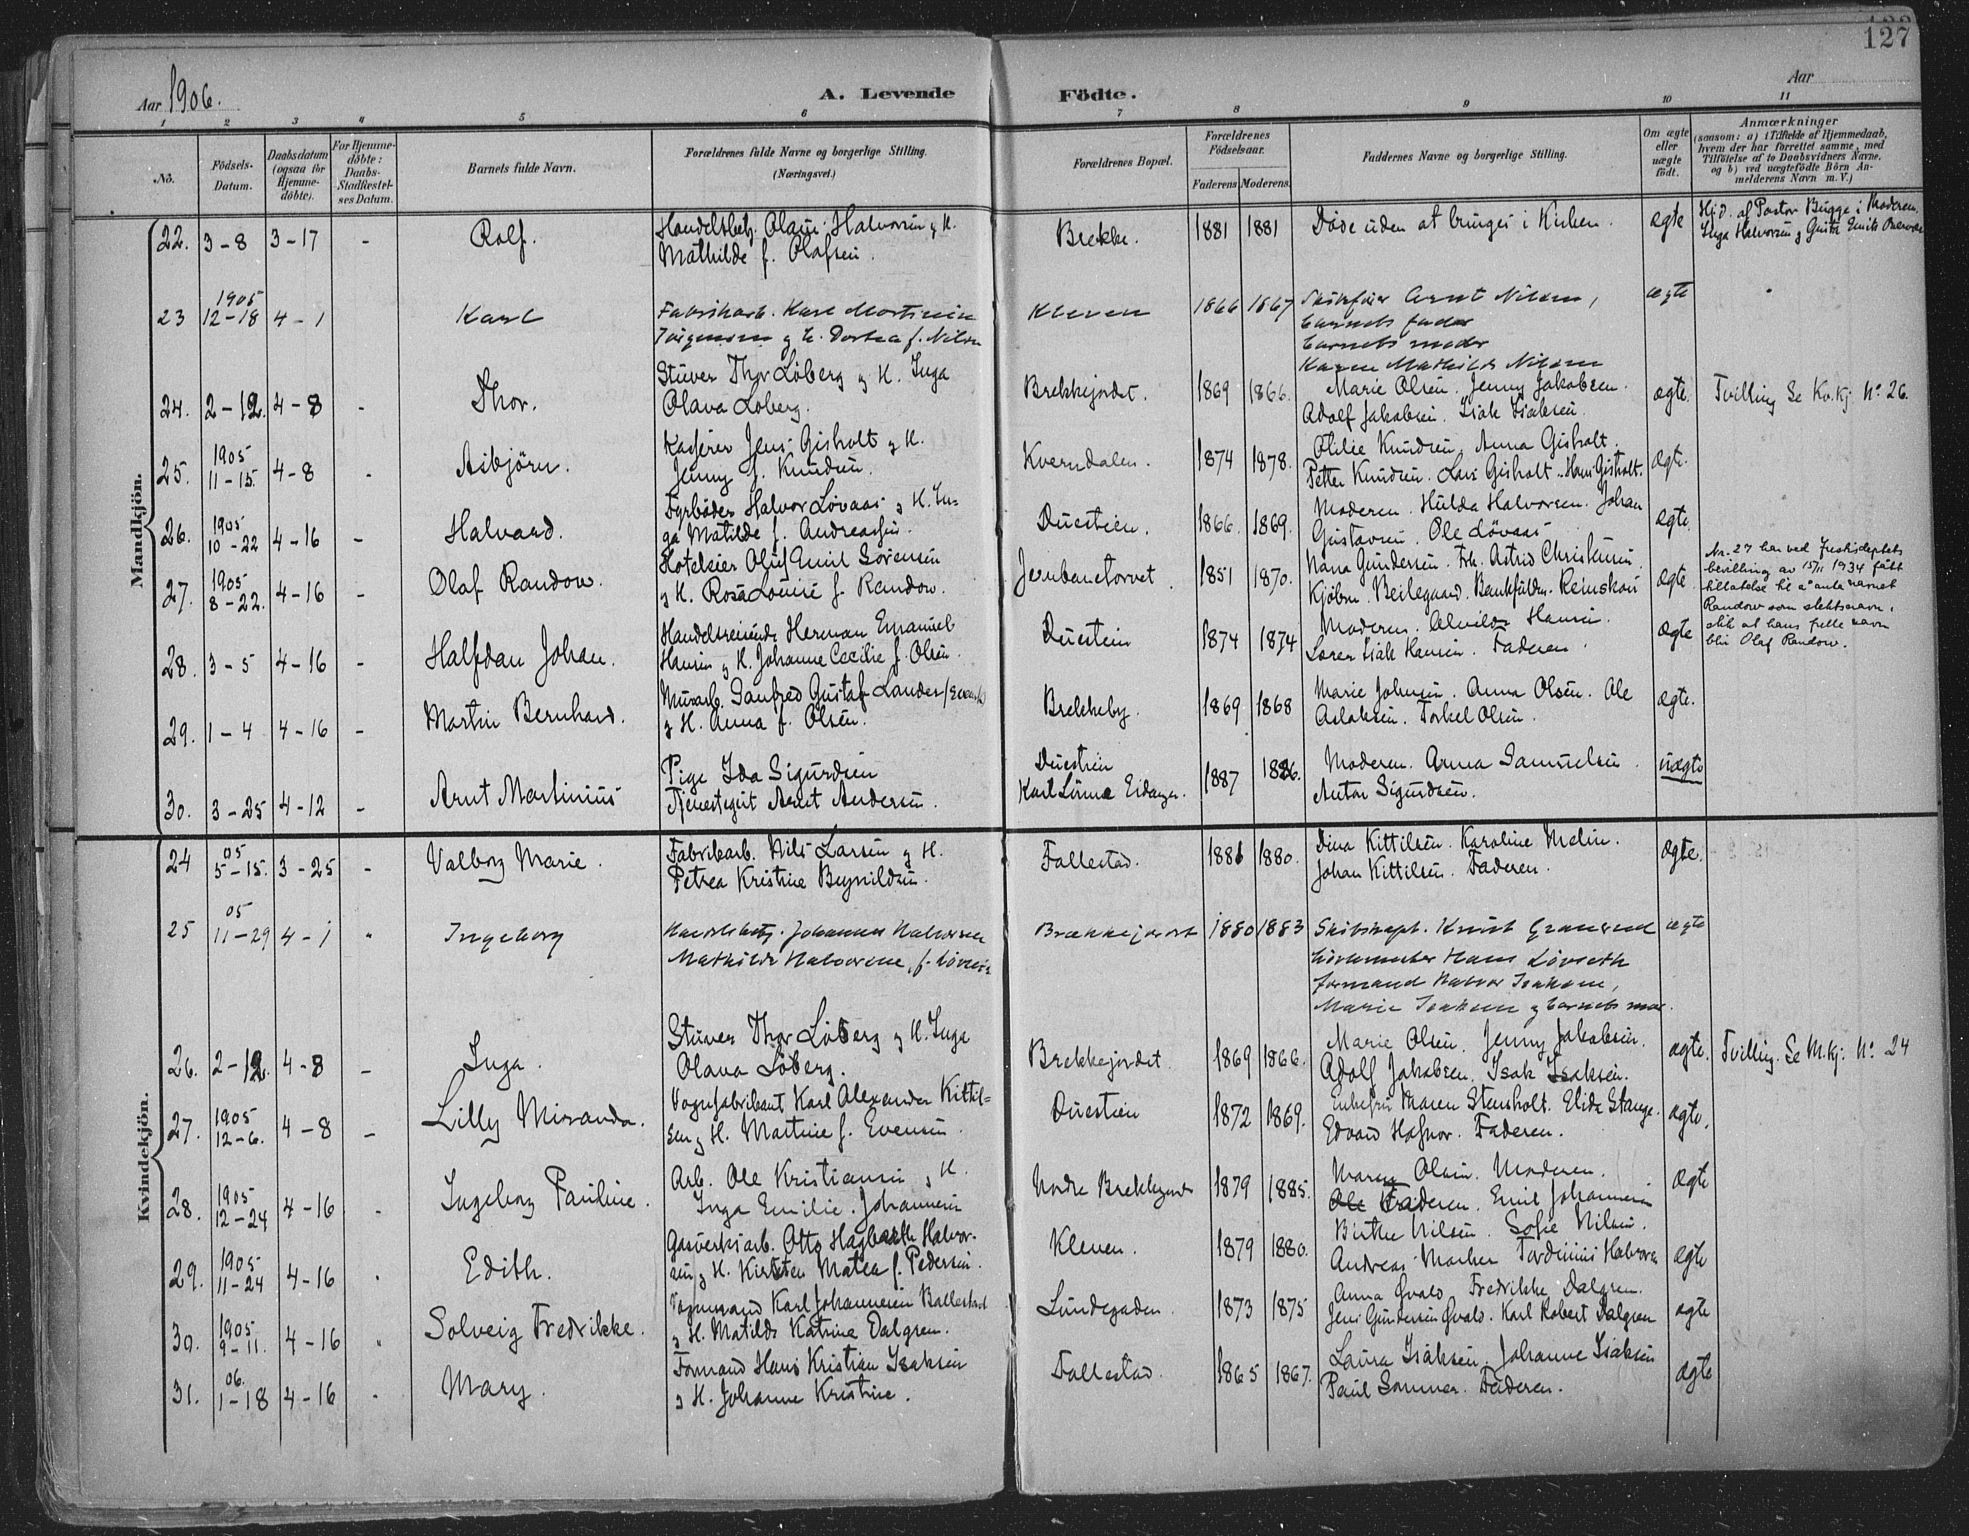 127
Aar 1906.
A. Levende Födte.
Aar
1 2 3 4 5 6 7 8 9 10 11
No.
Födsels-Datum.
Daabsdatum (ogsaa for Hjemme-döbte).
For Hjemme-döbte: Daabs-Stadfæstel-ses Datum.
Barnets fulde Navn.
Forældrenes fulde Navne og borgerlige Stilling. (Næringsvei.)
Forældrenes Bopæl.
Forældrenes Födselsaar.
Faderens Moderens.
Faddernes Navne og borgerlige Stilling.
Om ægte eller uægte födt.
Anmærkninger
(saasom: a) i Tilfælde af Hjemmedaab, hvem der har forrettet samme, med Tilföielse af to Daabsvidners Navne, og b) ved uægtefödte Börn An-melderens Navn m. V.)
Mandkjön.
22. 3-8 3-17 - Rolf. Olaus Halvorsen & H. Brekke. 1881 1881 Døde uden at bringes i Kirken. ægte Hjd. af Pastor Bugge i Moderen,
Mathilde f. Olafsen. Inga Halvorsen & Gusta
23 1905 12-18 4-1 Karl Fabrikarb. Karl Martinius Kleven 1866 1867 Arnt Nilsen, ægte
Jörgensen & h. Dortea f. Nilsen barnets fader
barnets moder
Karen Mathilde Nilsen
24. 2-12 4-8 - Thor. Stuver Thor Løberg & H. Inga Brekkejordet. 1869 1866. Marie Olsen. Jenny Jakobsen. ægte. Tvilling Se Kv.kj. No 26.
Olava Løberg. Adolf Jakobsen. Isak Isaksen.
25. 1905 11-15. 4-8 - Asbjörn. Kasserer Jens Gisholt & H. Kverndalen. 1874 1878. Otilie Knudsen, Anna Gisholt. ægte.
Jenny f. Knudsen. Petter Knudsen. Lars Gisholt. Hans Gisholt.
26. 1905 10-22 4-16 - Halvard. Fyrbøder Halvor Løvaas & H. In- Duestien. 1866. 1869. Moderen. Hulda Halvorsen. Johan ægte.
ga Matilde f. Andreassen. Gustavsen. Ole Løvaas
27. 1905 8-22. 4-16 - Olaf Randow. Hoteleier Oluf Emil Sörensen Jernbanetorvet. 1851 1870. Nana Gundersen. Frk. Astrid Christensen. ægte Nr. 27 har ved Justisdeptets
& H. Rosa Louise f. Randow. Kjøbm. Beilegaard. Bankfuldm. Reinskou bevilling av 15/11 1934 fått
tillatelse til å anta navnet
Randow som slektsnavn,
slik at hans fulle navn
blir Olaf Randow.
28. 3-5 4-16 - Halfdan Johan. Handelsreisende Herman Emanuel Duestien 1874 1874 Moderen. Alvilde Hansen. ægte
Hansen & H. Johanne Cecilie f. Olsen. Isak Hansen. Faderen.
29. 1-4 4-16 - Martin Bernhard. Murarb. Sanfred Gustaf Lander Brekkeby. 1869 1868 Marie Johnsen. Anna Olsen. Ole ægte.
& H. Anna f. Olsen. Aslaksen. Torkel Olsen.
30. 3-25 4-12 - Arnt Martinius Pige Ida Sigurdsen Duestien 1887 1886. Moderen. Anna Samuelsen. uægte
Tjenestegut Arnt Andersen. Eidanger. Anton Sigurdsen.
Kvindekjön.
24 05 5-15. 3-25 - Valborg Marie. Fabrikarb. Nils Larsen & H. Follestad. 1881 1880. Dina Kittilsen. Karoline Melin. ægte.
Petrea Kristine Brynildsen. Johan Kittilsen. Faderen.
25 05 11-29 4-1 " Ingeborg Johannes Halvorsen Brækkejordet 1880 1883 Skibskapt. Knut ægte
Mathilde Halvorsen, f. Hans Løvseth
formand Halvor Isaksen,
Marie Isaksen & barnets mor.
26. 2-12. 4-8 - Inga. Stuver Thor Løberg & H. Inga Brekkejordet. 1869 1866. Marie Olsen. Jenny Jakobsen. ægte. Tvilling. Se M.kj. No 24
Olava Løberg. Adolf Jakobsen. Isak Isaksen.
27. 1905 12-6. 4-8 - Lilly Miranda. Vognfabrikant Karl Alexander Kittil- Duestien 1872 1869. Enkefru Maren Stensholt. Elida Stange. ægte.
sen & H. Martine f. Evensen. Edvard Hafnor. Faderen.
28. 1905 12-24 4-16 - Ingeborg Pauline. Arb. Ole Kristiansen & H. Nordre Brekkejordet 1879 1885. Maren Olsen. Moderen. ægte
Inga Emilie. Johannesen Ole Faderen. Emil Johannesen
29. 1905 11-24 4-16 " Edith. Gasverksarb. Otto Hagbarth Halvor- Kleven. 1879 1880. Birthe Nilsen. Sofie Nilsen. ægte
sen & H. Kirsten Matea f. Pedersen. Andreas Halvorsen
30. 1905 9-11. 4-16 " Solveig Fredrikke. Vognmand Karl Johannesen Ballestad Lundegaden. 1873 1875 Anna Qvals Fredrikke Dalgren. ægte
& H. Matilde Katrine Dalgren. Jens Gundersen Qvals. Karl Robert Dalgren
31. 06. 1-18 4-16 - Mary. Formand Hans Kristian Isaksen Follestad. 1865 1867. Laura Isaksen. Johanne Isaksen ægte
& H. Johanne Kristine. Paul Sommer. Faderen.